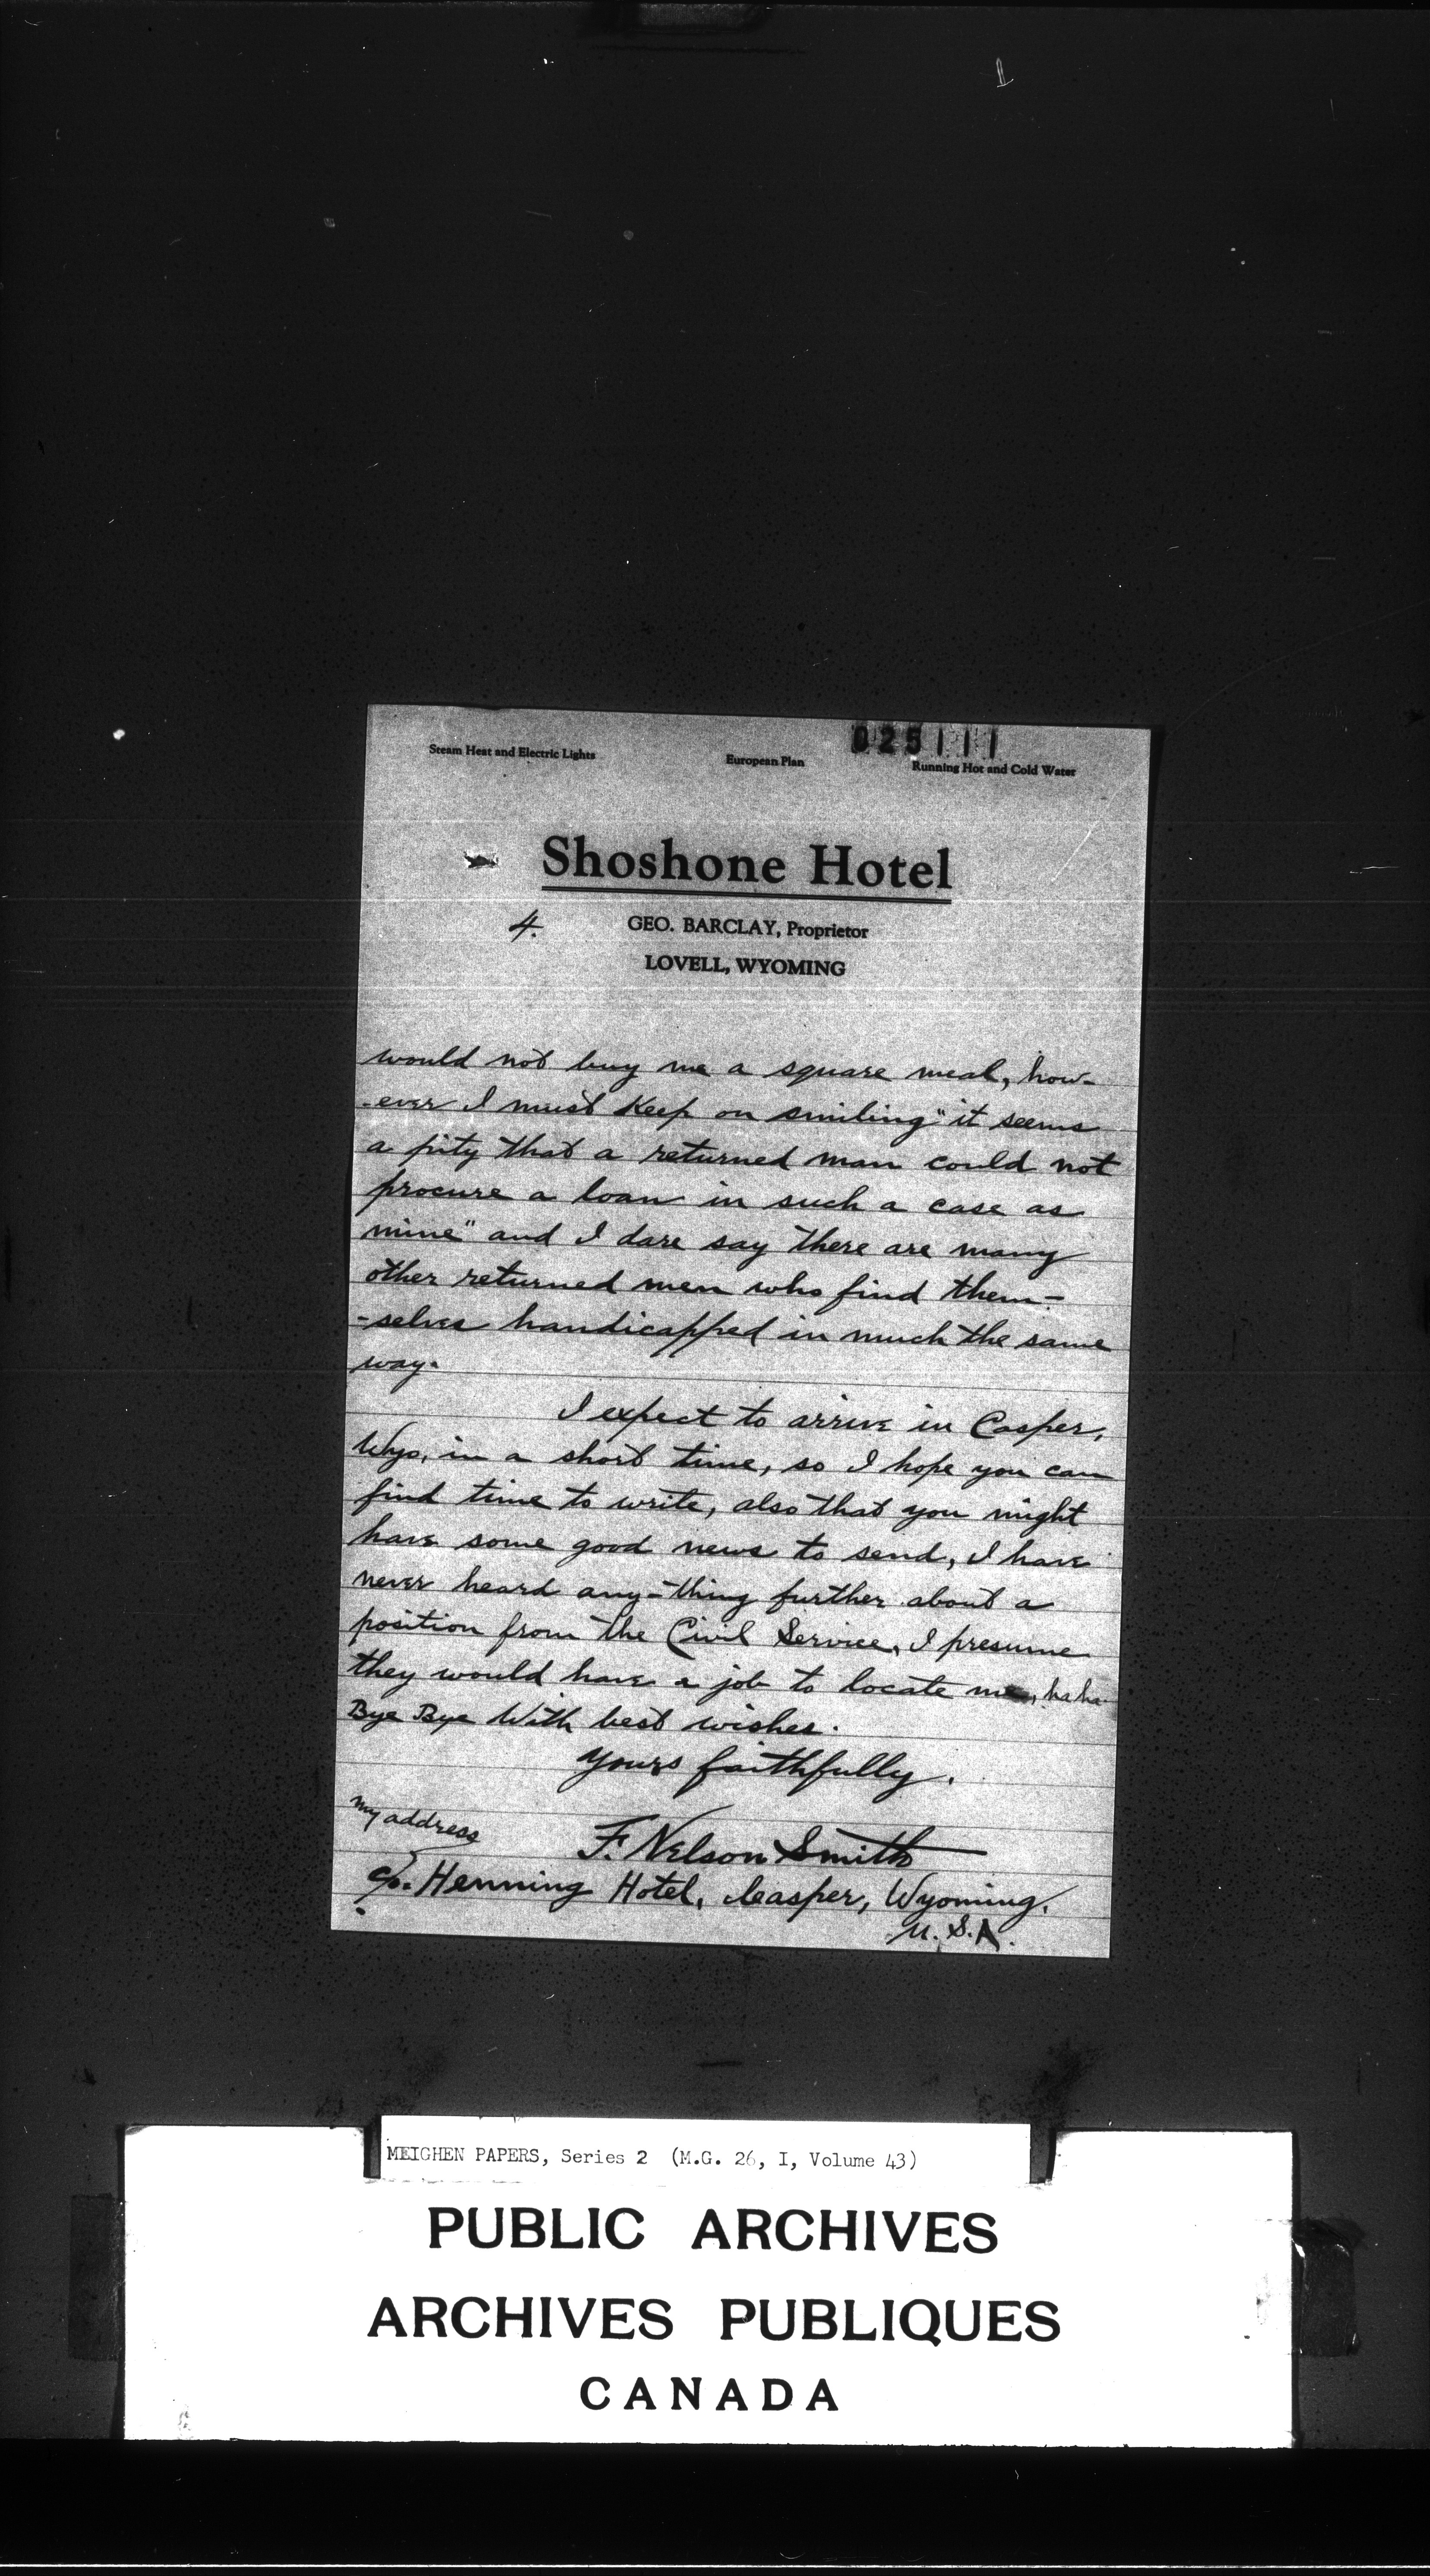 025111
Steam Heat and Electric Lights European Plan Running Hot and Cold Water
Shoshone Hotel
4. GEO. BARCLAY, Proprietor
LOVELL, WYOMING
would not buy me a square meal, how-
-ever I must keep on smiling "it seems
a pity that a returned man could not
procure a loan in such a case as
mine" and I dare say there are many
other returned men who find them-
-selves handicapped in much the same
way.
I expect to arrive in Casper,
Wyo, in a short time, so I hope you can
find time to write, also that you might
have some good news to send, I have
never heard any-thing further about a
position from the Civil Service, I presume
they would have a job to locate me, ha ha
Bye Bye With best wishes.
Yours faithfully.
my address
F. Nelson Smith
c/o. Henning Hotel, Casper, Wyoming.
U.S.A.
MEIGHEN PAPERS, Series 2 (M.G. 26, I, Volume 43)
PUBLIC ARCHIVES
ARCHIVES PUBLIQUES
CANADA